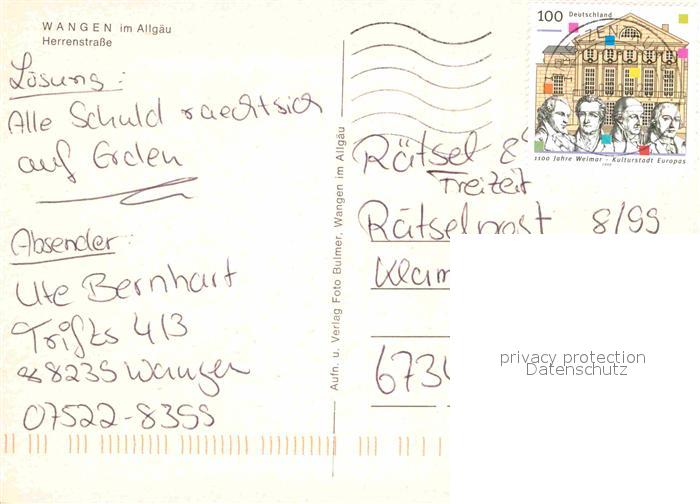 WANGEN im Allgäu
Herrenstraße
Lösung:
Alle Schuld raecht sich
auf Erden
Absender:
Ute Bernhart
88239 Wangen
07522-8399
Aufn. u. Verlag Foto Bulmer, Wangen im Allgäu
100 Deutschland
1100 Jahre Weimar - Kulturstadt Europas
1999
Rätsel &
Freizeit
Rätselpost 8/99
6734
privacy protection
Datenschutz